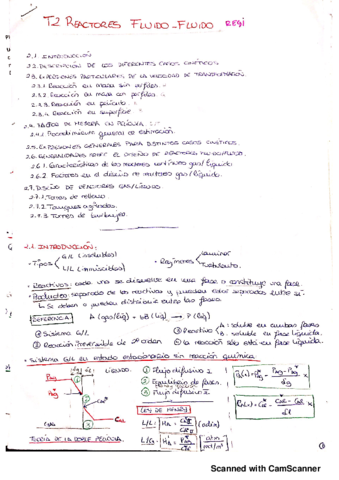 T2 REACTORES FLUIDO-FLUIDO. REGI
2.1 INTRODUCCIÓN
2.2. DESCRIPCIÓN DE LOS DIFERENTES CASOS CINÉTICOS
2.3. EXPRESIONES PARTICULARES DE LA VELOCIDAD DE TRANSFORMACIÓN
2.3.1 Reacción en masa sin perfiles
2.3.2 Reacción en masa con perfiles
2.3.3. Reacción en película.
2.3.4. Reacción en superficie
2.4.1. Procedimiento general de estimación.
2.5. EXPRESIONES GENERALES PARA DISTINTOS CASOS CINÉTICOS.
2.6. GENERALIDADES SOBRE EL DISEÑO DE REACTORES
2.6.1. Características de los reactores continuos gas/líquido
2.6.2 Factores en el diseño de reactores gas/líquido.
2.7. DISEÑO DE REACTORES GAS/LÍQUIDO.
2.7.1. Torres de relleno
2.7.2 Tanques agitados.
2.7.3 Torres de burbujeo.
2.1. INTRODUCCIÓN:
· Tipos G/L (solubles)
L/L (inmiscibles)
· Regímenes laminar
turbulento.
· Reactivos: cada uno se disuelve en una fase o constituye una fase.
· Productos: separado de los reactivos y pueden estar separados entre sí.
REFERENCIA A (gas/líq) + bB (líq) → P (líq)
① Sistema G/L
② Reacción irreversible de 2º orden
③ Reactivo A: soluble en ambas fases
B: soluble en fase líquida.
④ la reacción sólo está en fase líquida.
· Sistema G/L en estado estacionario sin reacción química
① Flujo difusivo 1
② Equilibrio de fases.
③ Flujo difusivo 2
LEY DE HENRY
TEORÍA DE LA DOBLE PELÍCULA
①
Scanned with CamScanner